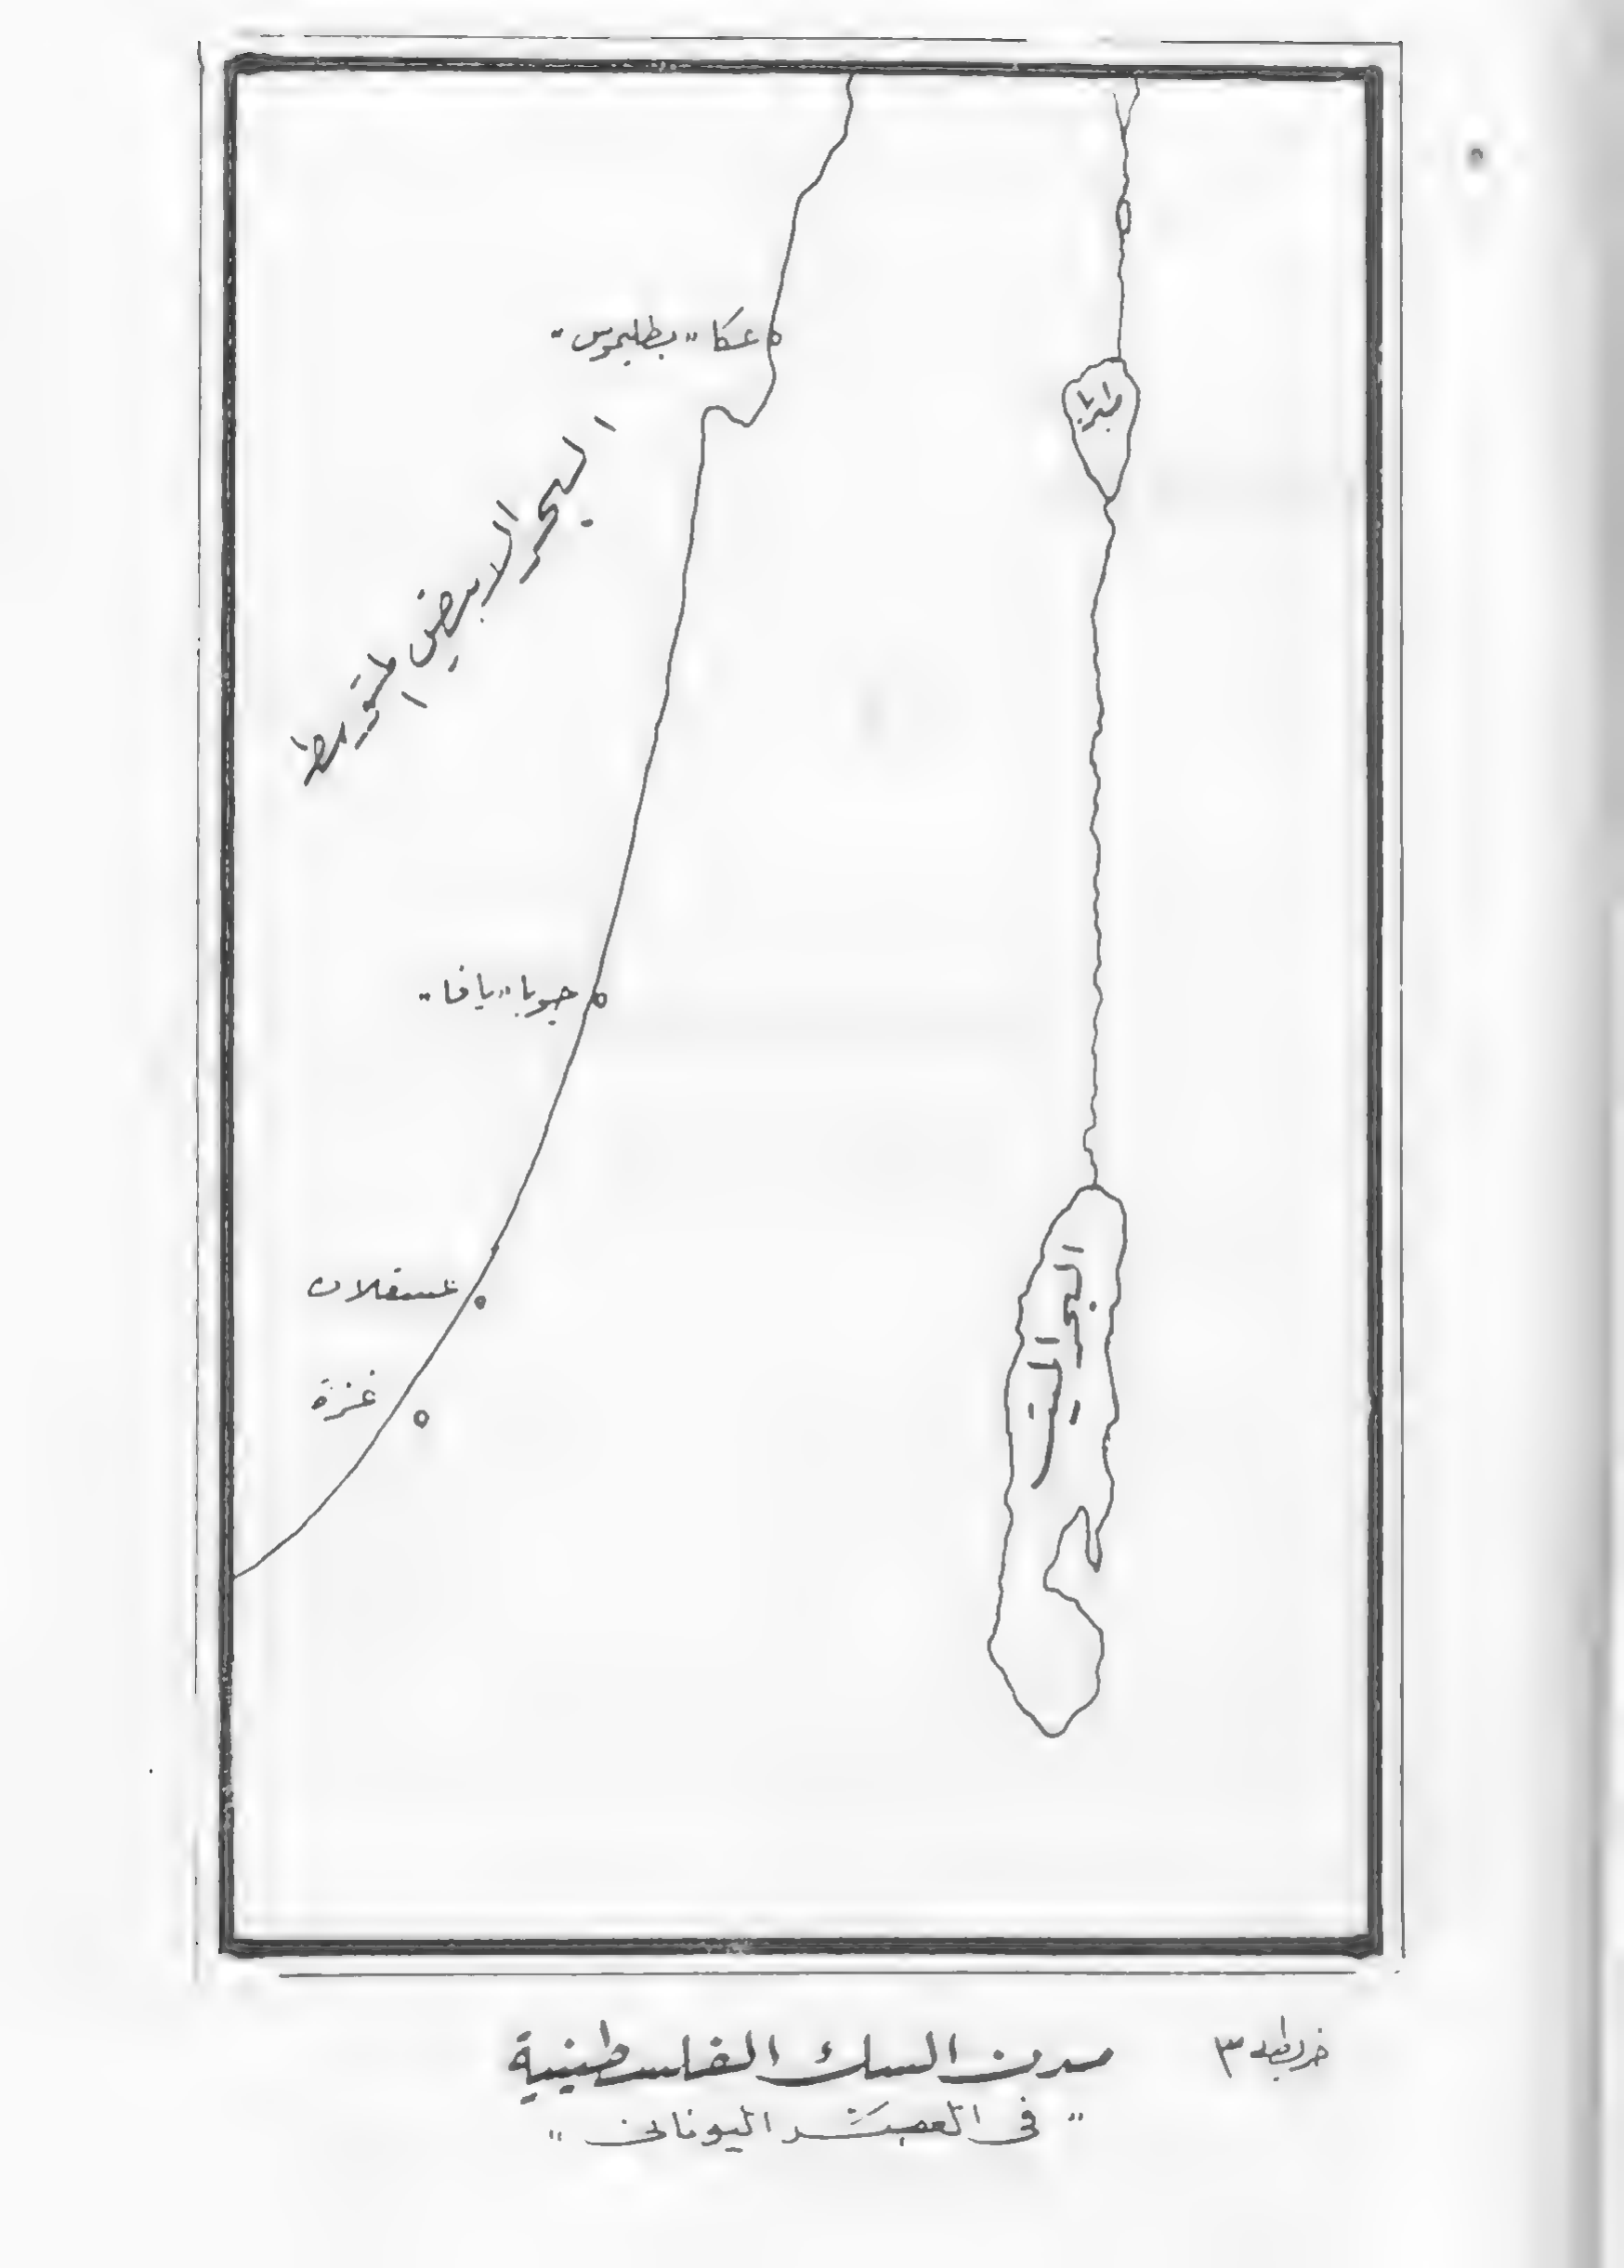 عكا "بطليموس"
طبريا
البحر الابيض المتوسط
جوبا "يافا"
عسقلان
غزة
البحر الميت
خريطة ٣
مدن السك الفلسطينية
"في العصر اليوناني"